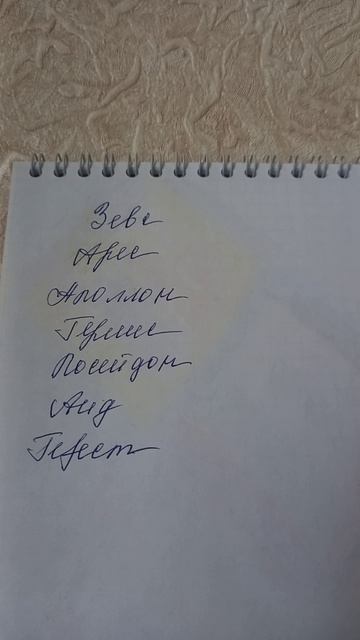 Зевс
Арес
Аполлон
Гермес
Посейдон
Аид
Гефест